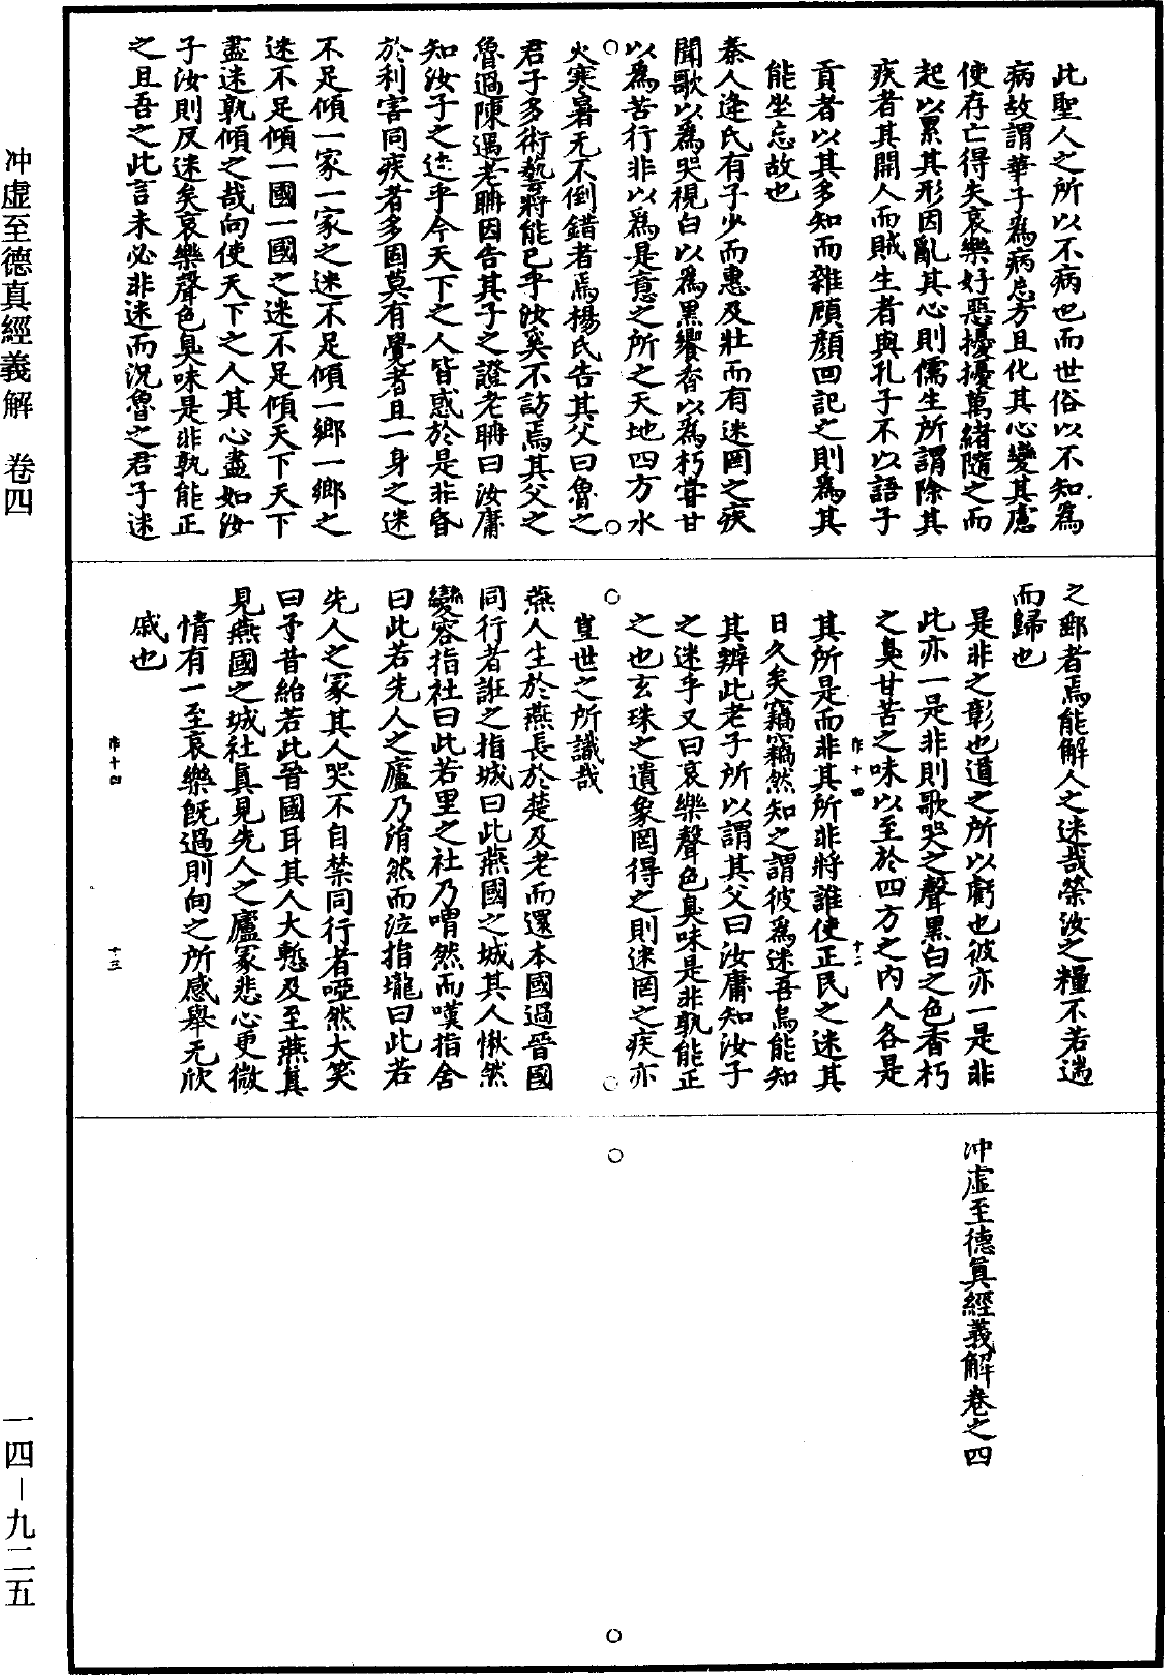 此聖人之所以不病也而世俗以不知為
病故謂華子為病忘方且化其心變其慮
使存亡得失哀樂好惡擾擾萬緒隨之而
起以累其形因亂其心則儒生所謂除其
疾者其開人而賊生者與孔子不以語子
貢者以其多知而雜顧顏回記之則為其
能坐忘故也
秦人逄氏有子少而惠及壯而有迷罔之疾
聞歌以為哭視白以為黑饗香以為朽甞甘
以為苦行非以為是意之所之天地四方水
火寒暑无不倒錯者焉楊氏告其父曰魯之
君子多術藝將能已乎汝奚不訪焉其父之
魯過陳遇老聃因告其子之證老聃曰汝庸
知汝子之迷乎今天下之人皆惑於是非昏
於利害同疾者多固莫有覺者且一身之迷
不足傾一家一家之迷不足傾一鄉一鄉之
迷不足傾一國一國之迷不足傾天下天下
盡迷孰傾之哉向使天下之人其心盡如汝
子汝則反迷矣哀樂聲色臭味是非孰能正
之且吾之此言未必非迷而況魯之君子迷
之郵者焉能解人之迷哉榮汝之糧不若遄
而歸也
是非之彰也道之所以虧也彼亦一是非
此亦一是非則歌哭之聲黑白之色香朽
之臭甘苦之味以至於四方之內人各是
其所是而非其所非將誰使正民之迷其
日久矣竊竊然知之謂彼為迷吾烏能知
其辨此老子所以謂其父曰汝庸知汝子
之迷乎又曰哀樂聲色臭味是非孰能正
之也玄珠之遺象罔得之則迷罔之疾亦
豈世之所識哉
燕人生於燕長於楚及老而還本國過晉國
同行者誑之指城曰此燕國之城其人愀然
變容指社曰此若里之社乃喟然而嘆指舍
曰此若先人之廬乃涓然而泣指壠曰此若
先人之冢其人哭不自禁同行者啞然大笑
曰予昔紿若此晉國耳其人大慙及至燕真
見燕國之城社真見先人之廬冢悲心更微
情有一至哀樂既過則向之所感舉无欣
戚也
十四 十二
十四 十三
冲虛至德真經義解卷之四
冲虛至德真經義解 卷四
一四－九二五